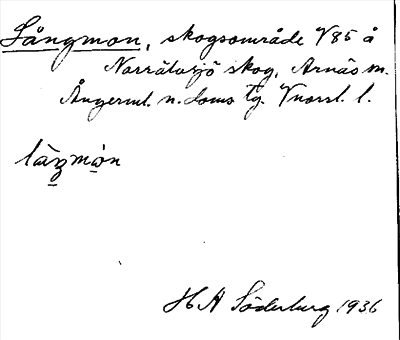 Långmon, skogsområde V85 å
Norrälvsjö skog, Arnäs sn.
Ångerml. n. doms tg. Vnorrl. l.
H A Söderberg 1936